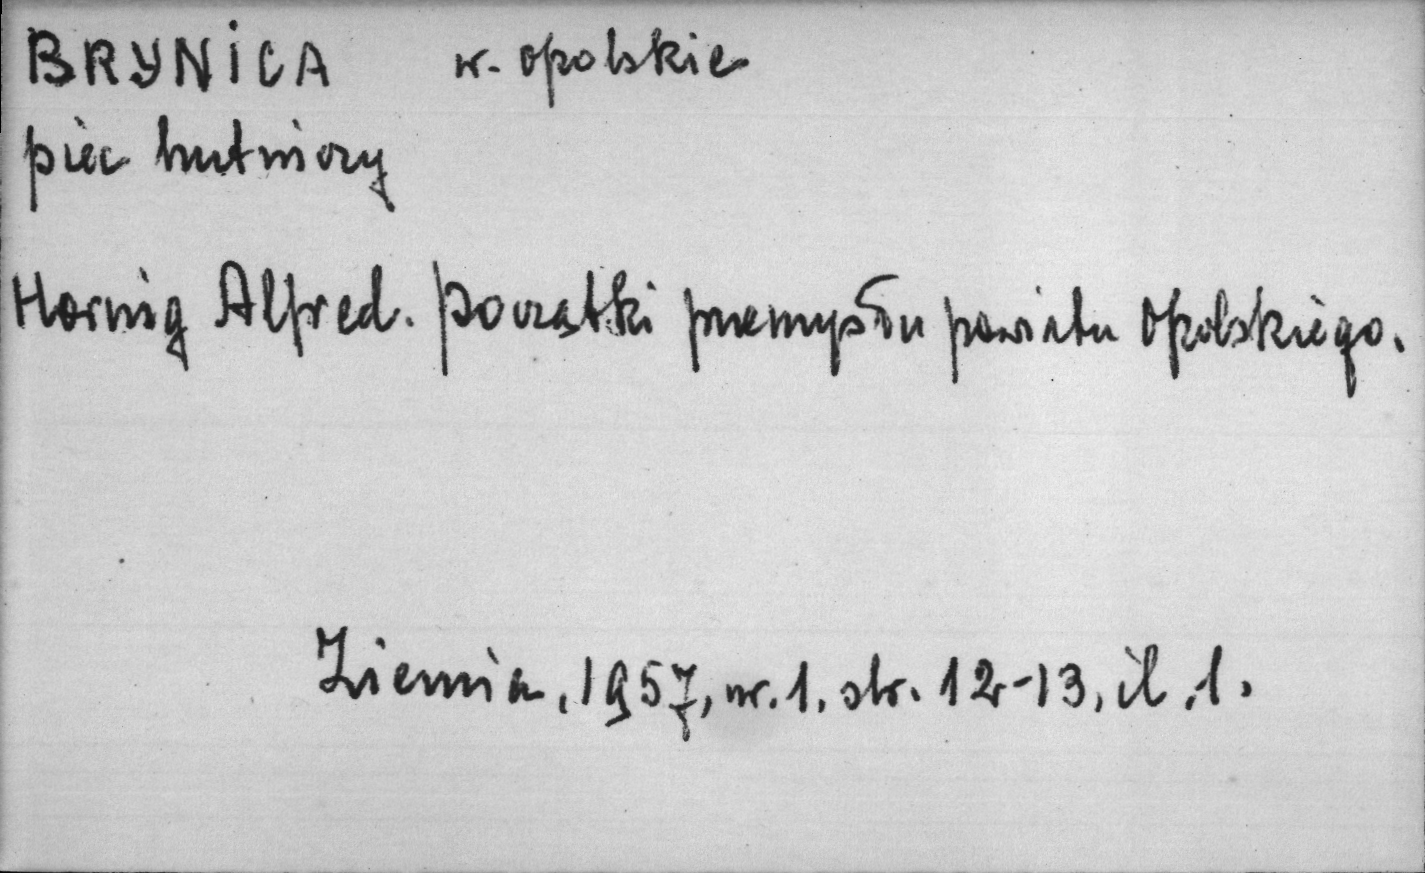 BRYNICA w. opolskie
piec hutniczy
Hornig Alfred. Początki przemysłu powiatu Opolskiego.
Ziemia, 1957, nr. 1, str. 12-13, il. 1.